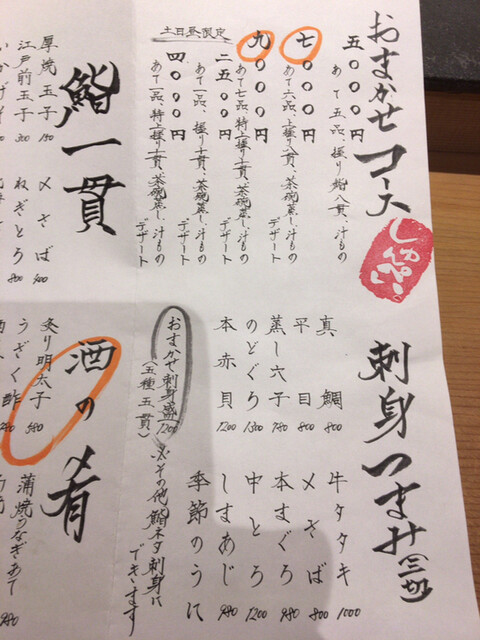 おまかせコース
しゅんぺい
五〇〇〇円
あて五品、握り鮨八貫、汁もの
七〇〇〇円
あて六品、上握り八貫、茶碗蒸し、汁もの
デザート
九〇〇〇円
あて七品、特上握り十貫、茶碗蒸し、汁もの
デザート
土日昼限定
二五〇〇円
あて一品、握り十貫、茶碗蒸し、汁もの
デザート
四〇〇〇円
あて一品、特上握り十貫、茶碗蒸し、汁もの
デザート
刺身つまみ(三切)
真鯛 800
平目 800
蒸し穴子 780
のどぐろ 1300
本赤貝 1200
牛タタキ 1000
〆さば 800
本まぐろ 980
中とろ 1200
しまあじ 980
季節のうに
おまかせ刺身盛 1200
(五種五貫)
※その他鮨ネタ刺身に
できます
鮨一貫
厚焼玉子 150
江戸前玉子 300
〆さば
ねぎとろ
酒の肴
炙り明太子 580
うざく酢
蒲焼うなぎあて